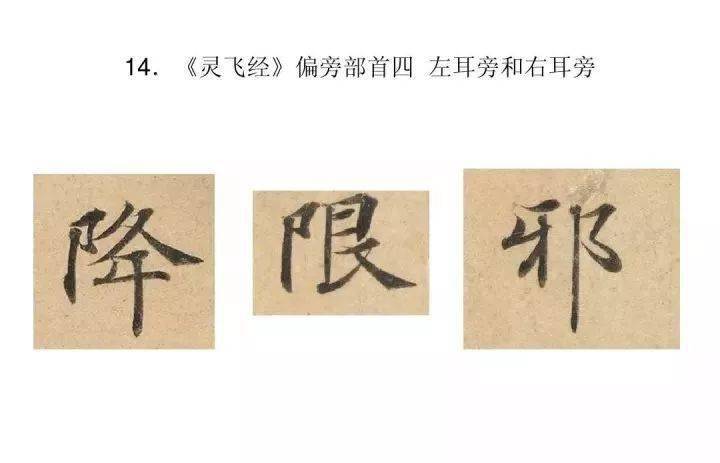 14. 《灵飞经》偏旁部首四 左耳旁和右耳旁
降 限 邪